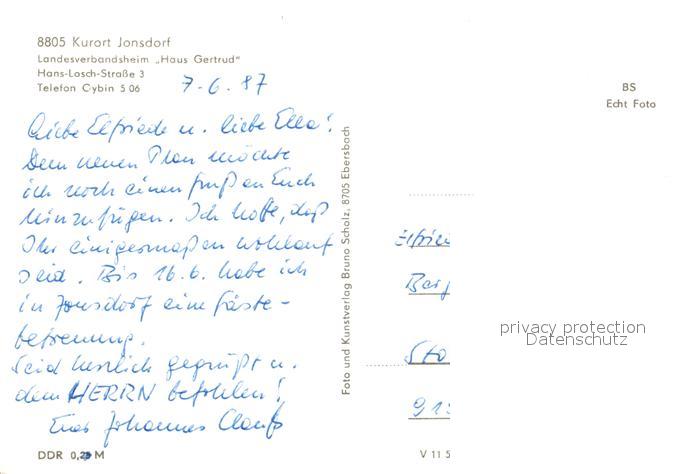 8805 Kurort Jonsdorf
Landesverbandsheim „Haus Gertrud"
Hans-Losch-Straße 3
Telefon Cybin 5 06
7. 6. 87
Liebe Elfriede u. liebe Ella!
Dem neuen Plan möchte
ich noch einen Gruß an Euch
hinzufügen. Ich hoffe, daß
Ihr einigermaßen wohlauf
seid. Bis 16.6. habe ich
in Jonsdorf eine Gäste-
betreuung.
Seid herzlich gegrüßt u.
dem HERRN befohlen!
Euer Johannes
DDR 0, M
Foto und Kunstverlag Bruno Scholz, 8705 Ebersbach
BS
Echt Foto
Elfrie
privacy protection
Datenschutz
V 11 5